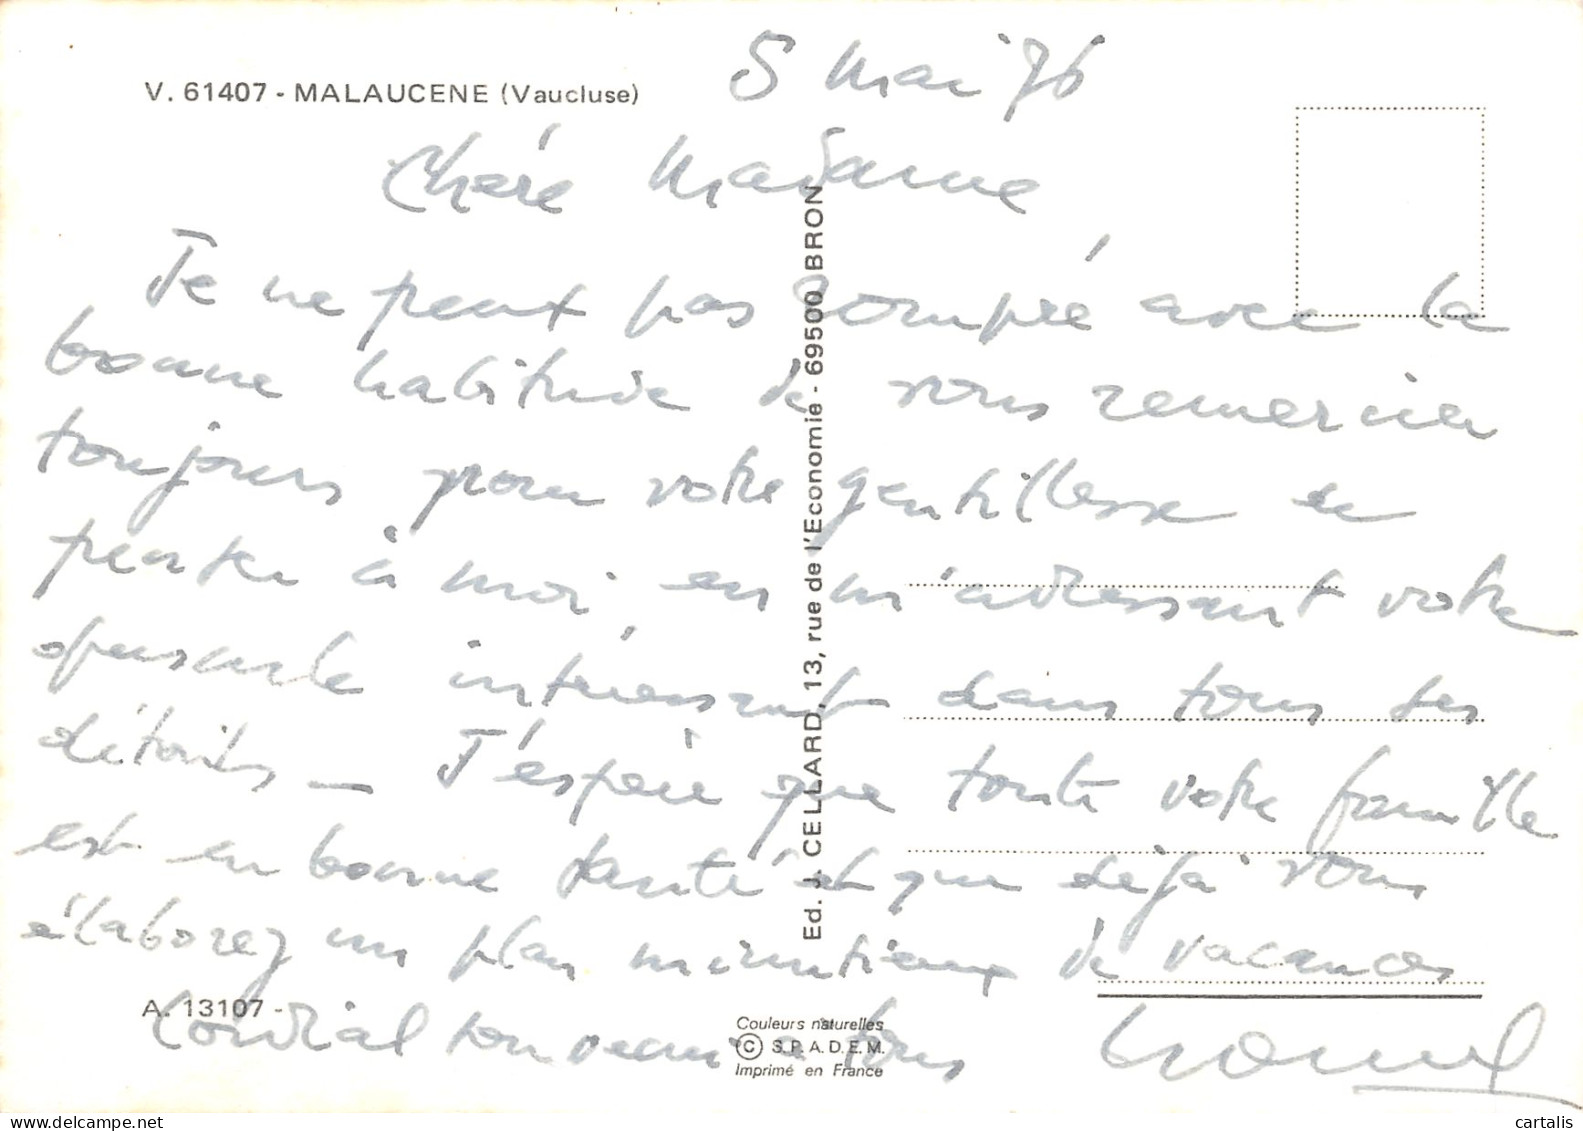 V. 61407 - MALAUCENE (Vaucluse)
5 Mai 76
Chère Madame
Je ne peut pas rompre avec la
bonne habitude de vous remercier
toujours pour votre gentillesse de
penser à moi en m'adressant votre
opuscule intéressant dans tous ses
détails — J'espère que toute votre famille
est en bonne santé et que déjà vous
élaborez un plan minutieux de vacances
Cordial souvenir à tous
A. 13107 -
Ed. J. CELLARD, 13, rue de l'Economie - 69500 BRON
Couleurs naturelles
© S.P.A.D.E.M.
Imprimé en France
cartalis